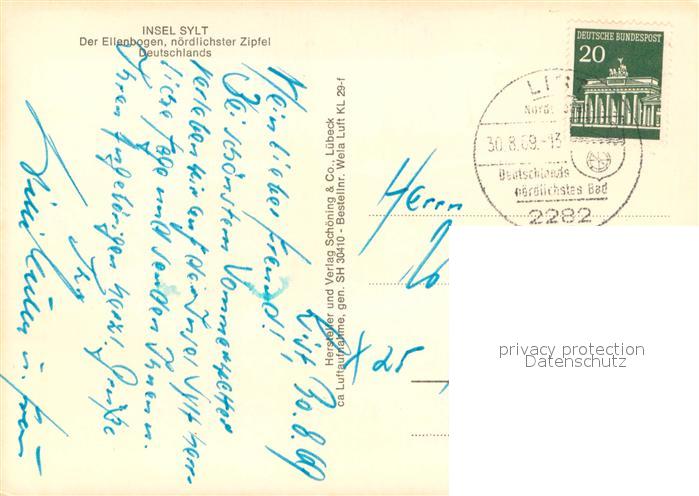 INSEL SYLT
Der Ellenbogen, nördlichster Zipfel
Deutschlands
List, 30.8.69
Mein lieber Freund!
Bei schönstem Sommerwetter
verleben wir auf der Insel Sylt herr-
liche Tage und senden Ihnen u.
Ihren Angehörigen herzl. Grüße
Ihr
u. Frau
Hersteller und Verlag Schöning & Co., Lübeck
ca Luftaufnahme, gen. SH 30410 - Bestellnr. Wela Luft KL 29-f
DEUTSCHE BUNDESPOST
20
LIS
30.8.69.-13
Deutschlands
nördlichstes Bad
2282
Herrn
X 25
privacy protection
Datenschutz